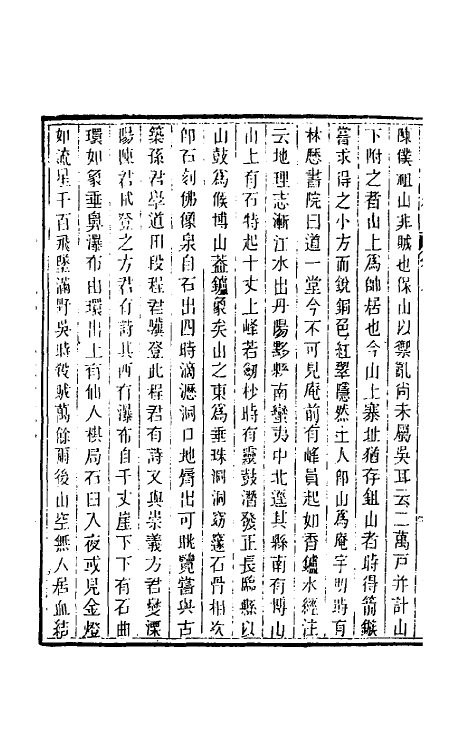 陳僕祖山非賊也保山以禦亂尚未屬吳耳云二萬戸并計山
下附之者山上為帥居也今山上寨址猶存鉏山者時得箭鏃
嘗求得之小方而銳銅色紅翠隱然土人即山為庵宇明時有
林歷書院曰道一堂今不可見庵前有峰員起如香鑪水經注
云地理志漸江水出丹陽黟縣南蠻夷中北逕其縣南有博山
山上有石特起十丈上峰若劒杪時有靈鼓潛發正長臨縣以
山鼓為候博山葢鑪象矣山之東為垂珠洞洞窈窱石骨相次
即石刻佛像泉自石出四時滴瀝洞口地膺出可眺覽嘗與古
築孫君學道田段程君驥登此程君有詩文與崇義方君燮溧
陽陳君斌登之方君有詩其西有瀑布自千丈崖下下有石曲
環如象垂鼻瀑布由環出上有仙人棋局石臼入夜或見金燈
如流星千百飛墜滿野吳時役賊萬餘爾後山空無人居血結